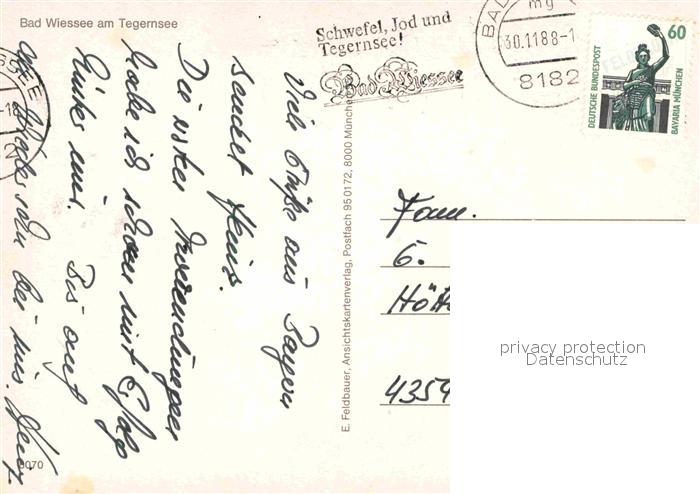 Bad Wiessee am Tegernsee
Schwefel, Jod und
Tegernsee!
Bad Wiessee
BAD
30.11.88-1
8182
60
DEUTSCHE BUNDESPOST
BAVARIA MÜNCHEN
Viele Grüße aus Bayern
sendet Heinz.
Die ersten Anwendungen
habe ich schon mit Erfolg
hinter mir. Bis auf
Wiedersehn bei uns. Heinz
E. Feldbauer, Ansichtskartenverlag, Postfach 950172, 8000 München
Fam.
G.
4354
privacy protection
Datenschutz
8070